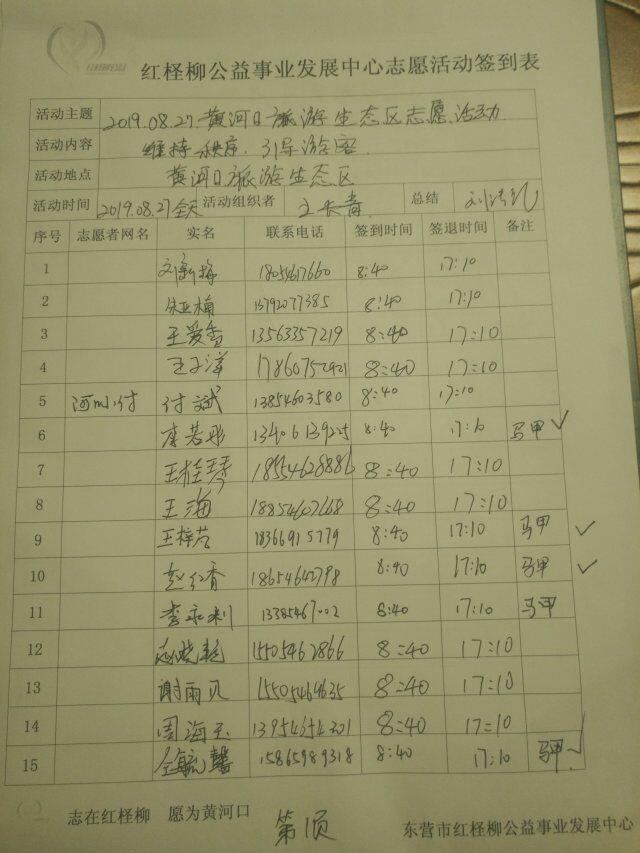 红柽柳公益事业发展中心志愿活动签到表
活动主题 2019.08.27.黄河口旅游生态区志愿活动
活动内容 维持秩序.引导游客
活动地点 黄河口旅游生态区
活动时间 2019.08.27全天 活动组织者 王长青 总结
序号 志愿者网名 实名 联系电话 签到时间 签退时间 备注
1 18054617660 8:40 17:10
2 13792077385 8:40 17:10
3 王爱香 13563357219 8:40 17:10
4 王子洋 17860752921 8:40 17:10
5 付斌 13854603580 8:40 17:10
6 李若彤 13406139225 8:40 17:10 马甲 ✓
7 王桂琴 18554628886 8:40 17:10
8 王海 18854607668 8:40 17:10
9 王梓茗 18366915779 8:40 17:10 马甲 ✓
10 赵红香 18654642798 8:40 17:10 马甲 ✓
11 李永利 13385467002 8:40 17:10 马甲
12 15505462866 8:40 17:10
13 谢雨贝 15505464635 8:40 17:10
14 周海玉 13954654201 8:40 17:10
15 15865989318 8:40 17:10 马甲 ✓
志在红柽柳 愿为黄河口
第1页
东营市红柽柳公益事业发展中心